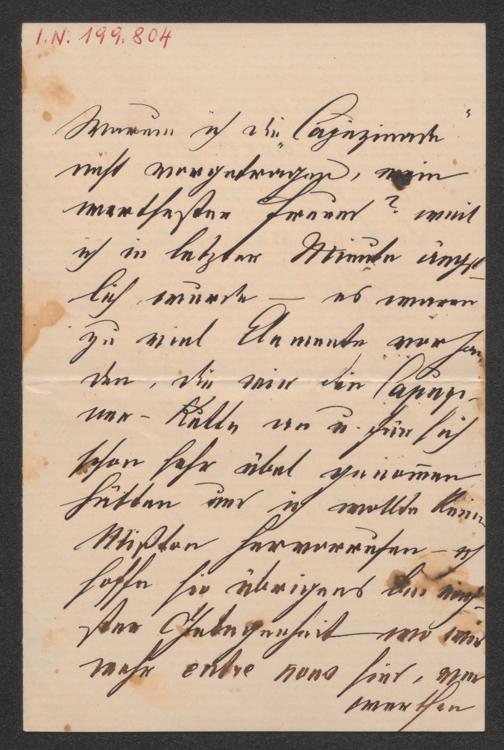 I.N. 199.804
Warum ich die „Capuzinade"
nicht vorgetragen, mein
werthester Freund? weil
ich in letzter Minute ängst-
lich wurde — es waren
zu viel Elemente vorhan-
den, die mir die Capuzi-
ner-Kutte an u. für sich
schon sehr übel genommen
hätten und ich wollte keinen
Mißton hervorrufen — ich
hoffe sie übrigens bei näch-
ster Gelegenheit wo wir
mehr entre nous sind, ver-
werthen